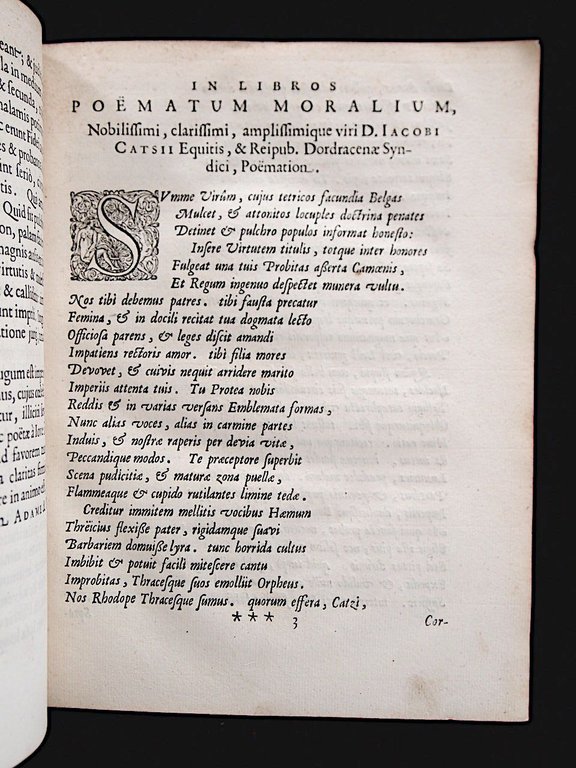 eant; &
la in medium
& secunda,
halamis par
c erunt Fide
s & proba
int serio,
tis. Qui
Quid si pu
on, palam
magnis
virtutis &
& callid
unt impii,
atione jur
ugum est
mus, cujus
tur, illicii
c poëtæ à
ad favorem
n claritas
re in animo
ADAM
IN LIBROS
POËMATUM MORALIUM,
Nobiliſſimi, clariſſimi, ampliſſimique viri D. IACOBI
CATSII Equitis, & Reipub. Dordracenæ Syn-
dici, Poëmation.
SVmme Virûm, cujus tetricos facundia Belgas
Mulcet, & attonitos locuples doctrina penates
Detinet & pulchro populos informat honeſto:
Inſere Virtutem titulis, totque inter honores
Fulgeat una tuis Probitas aſſerta Camœnis,
Et Regum ingenuo deſpectet munera vultu.
Nos tibi debemus patres. tibi fauſta precatur
Femina, & in docili recitat tua dogmata lecto
Officioſa parens, & leges diſcit amandi
Impatiens rectoris amor. tibi filia mores
Devovet, & cuivis nequit arridere marito
Imperiis attenta tuis. Tu Protea nobis
Reddis & in varias verſans Emblemata formas,
Nunc alias voces, alias in carmine partes
Induis, & noſtræ raperis per devia vitæ,
Peccandique modos. Te præceptore ſuperbit
Scena pudicitiæ, & maturæ zona puellæ,
Flammeaque & cupido rutilantes limine tedæ.
Creditur immitem mellitis vocibus Hæmum
Threïcius flexiſſe pater, rigidamque ſuavi
Barbariem domuiſſe lyra. tunc horrida cultus
Imbibit & potuit facili miteſcere cantu
Improbitas, Thraceſque ſuos emolliit Orpheus.
Nos Rhodope Thraceſque ſumus. quorum effera, Catzi,
*** 3 Cor-